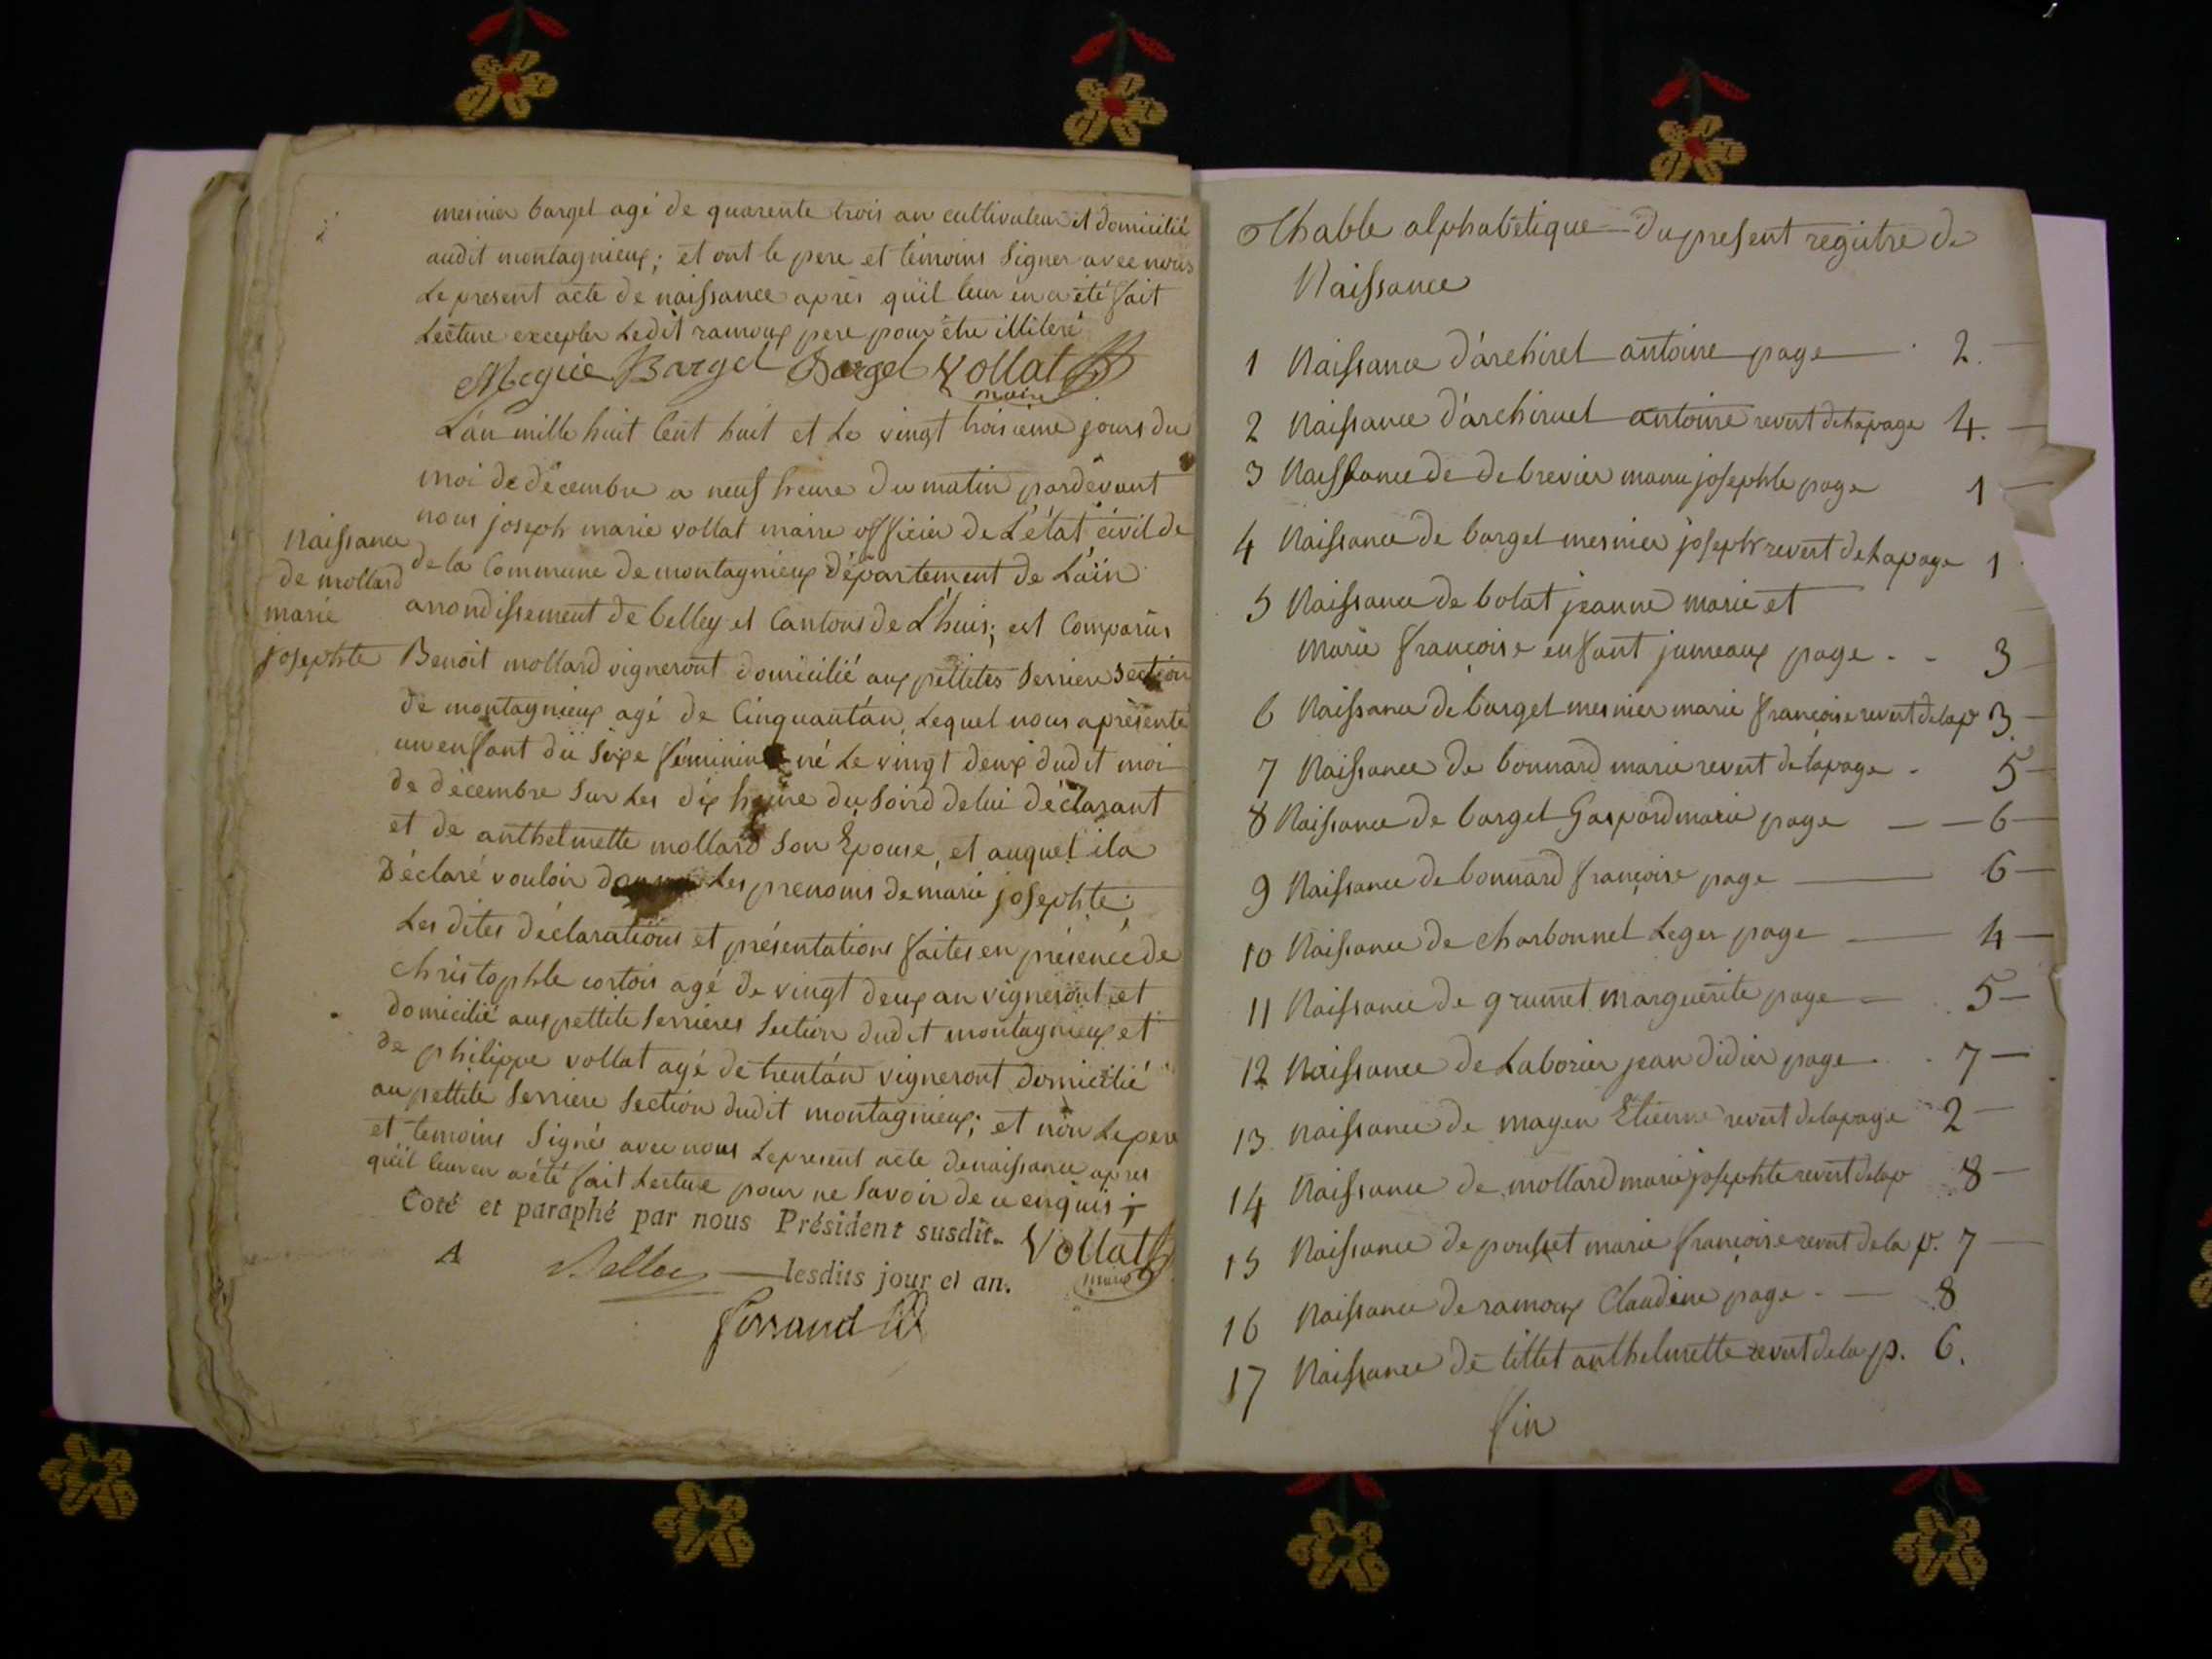 mesnier bargel agé de quarente trois an cultivateur et domicilié
audit montagnieux; et ont le pere et témoins Signer avec nous
Le present acte de naissance après qu'il leur en a été fait
Lecture excepter Ledit ramoux pere pour être illiteré
Bargel Bargel Vollat
maire
L'an mille huit Cent huit et Le vingt troisieme jours du
moi de décembre a neuf heure du matin pardevant
nous joseph marie vollat maire officier de L'état civil de
de la Commune de montagnieux département de L'ain
arrondissement de belley et Cantons de L'huis; est Comparus
Benoit mollard vigneront domicilié aux pettites Serriere Section
de montagnieux agé de Cinquant'an, Lequel nous a présenté
un enfant du Sexe féminin né Le vingt deux dudit moi
de décembre Sur Les dix heure du Soird de lui déclarant
et de anthelmette mollard Son Epouse, et auquel il a
Déclaré vouloir donner Les prenoms de marie josephte;
Les dites déclarations et présentations faites en présence de
christophle cortois agé de vingt deux an vigneront et
domicilié aux pettite Serrieres Section dudit montagnieux et
de philippe vollat agé de trent'an vigneront domicilié
au pettite Serriere Section dudit montagnieux; et non Le pere
et temoins Signés avec nous Le present acte de naissance apres
qu'il leur en a été fait Lecture pour ne Savoir de ce enquis
Naissance
de mollard
marie
josephte
Coté et paraphé par nous Président susdit.
Vollat
maire
A Belley lesdits jour et an.
Ferrand
Thable alphabetique du present registre de
Naissance
1 Naissance d'archirel antoine page 2.
2 Naissance d'archiruel antoine revert de la page 4.
3 Naissance de debrevier marie josephte page 1
4 Naissance de bargel mesnier joseph revert de La page 1
5 Naissance de bolat jeanne marie et
marie françoise enfant jumeaux page 3
6 Naissance de bargel mesnier marie françoise revert de la p 3.
7 Naissance de bonnard marie revert de la page 5
8 Naissance de bargel Gaspard marie page 6
9 Naissance de bonnard françoise page 6
10 Naissance de charbonnel Leger page 4
11 Naissance de grumet marguerite page 5
12 Naissance de Laborier jean didier page 7
13 naissance de mayen Etienne revert de la page 2
14 Naissance de mollard marie josephte revert de la p 8
15 Naissance de pousset marie françoise revert de la p. 7
16 Naissance de ramoux Claudine page 8
17 Naissance de tillet anthelmette revert de la p. 6.
fin